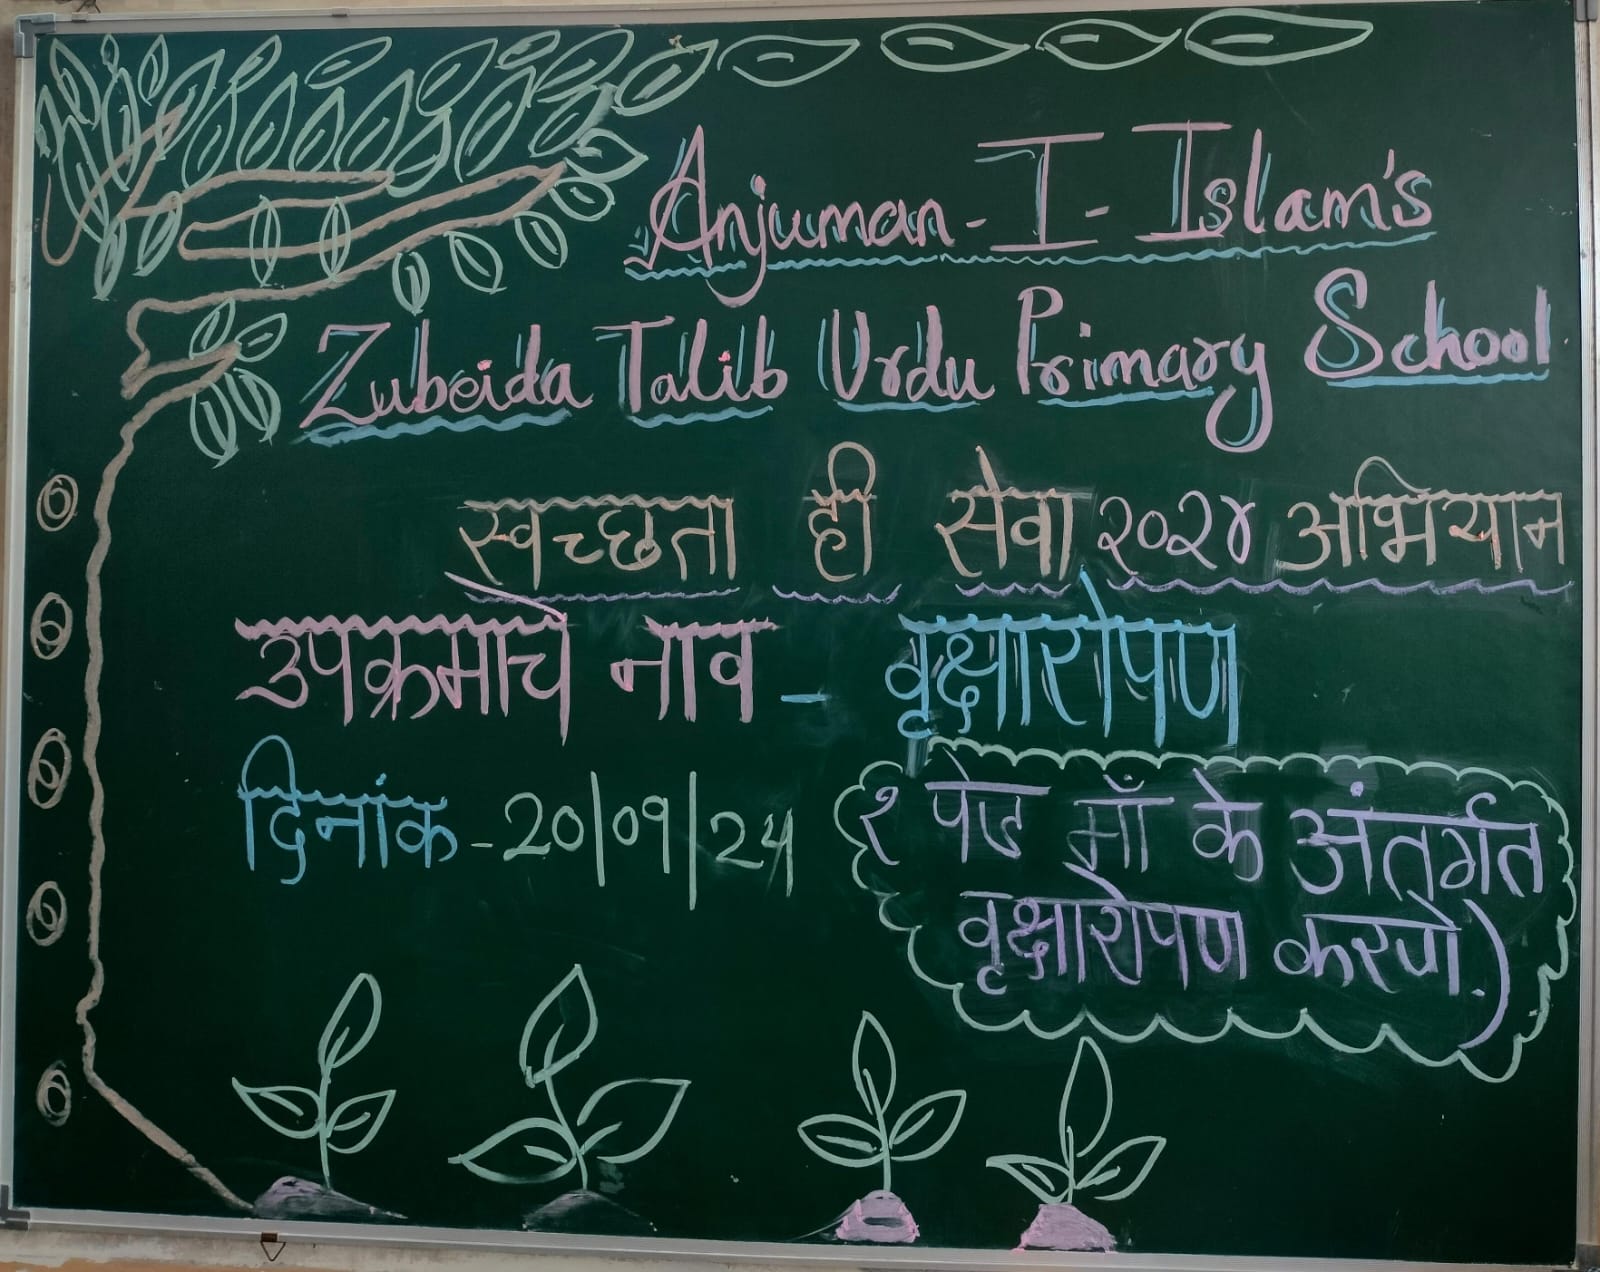 Anjuman-I-Islam's
Zubeida Talib Urdu Primary School
स्वच्छता ही सेवा २०२४ अभियान
उपक्रमाचे नाव - वृक्षारोपण
दिनांक - 20/09/24
(१ पेड माँ के अंतर्गत
वृक्षारोपण करणे.)